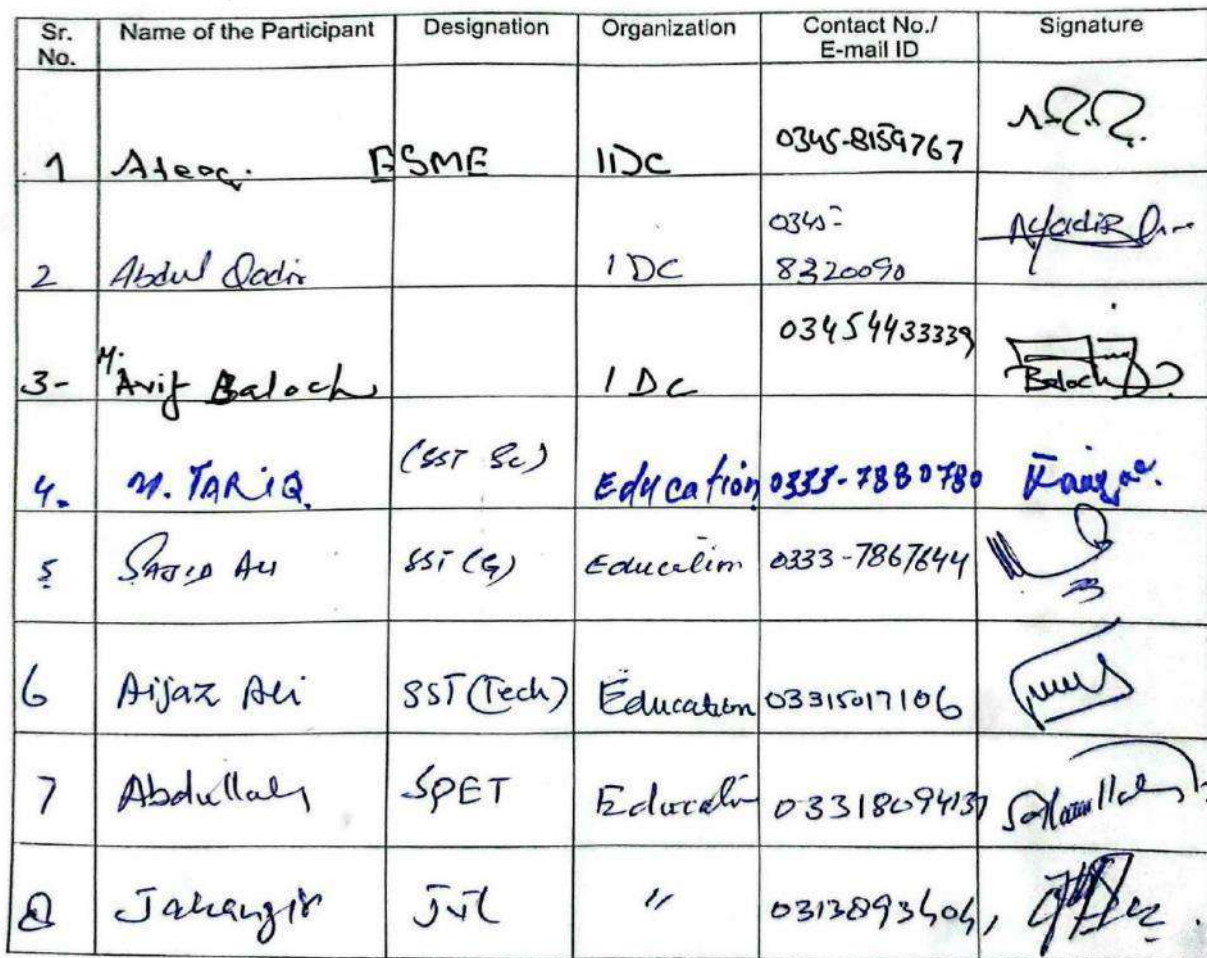 Sr. No. Name of the Participant Designation Organization Contact No./ E-mail ID Signature
1 Ateeq. ESME IDC 0345-8159767
2 Abdul Qadir IDC 0345- 8320090
3- M. Arif Baloch IDC 03454433339 Baloch
4. M. TARIQ (SST Sc) Education 0333-7880780
5 SAJID Ali SST (G) Education 0333-7867644
6 Aijaz Ali SST (Tech) Education 03315017106
7 Abdullah SPET Education 03318094137
8 Jahangir JVT "